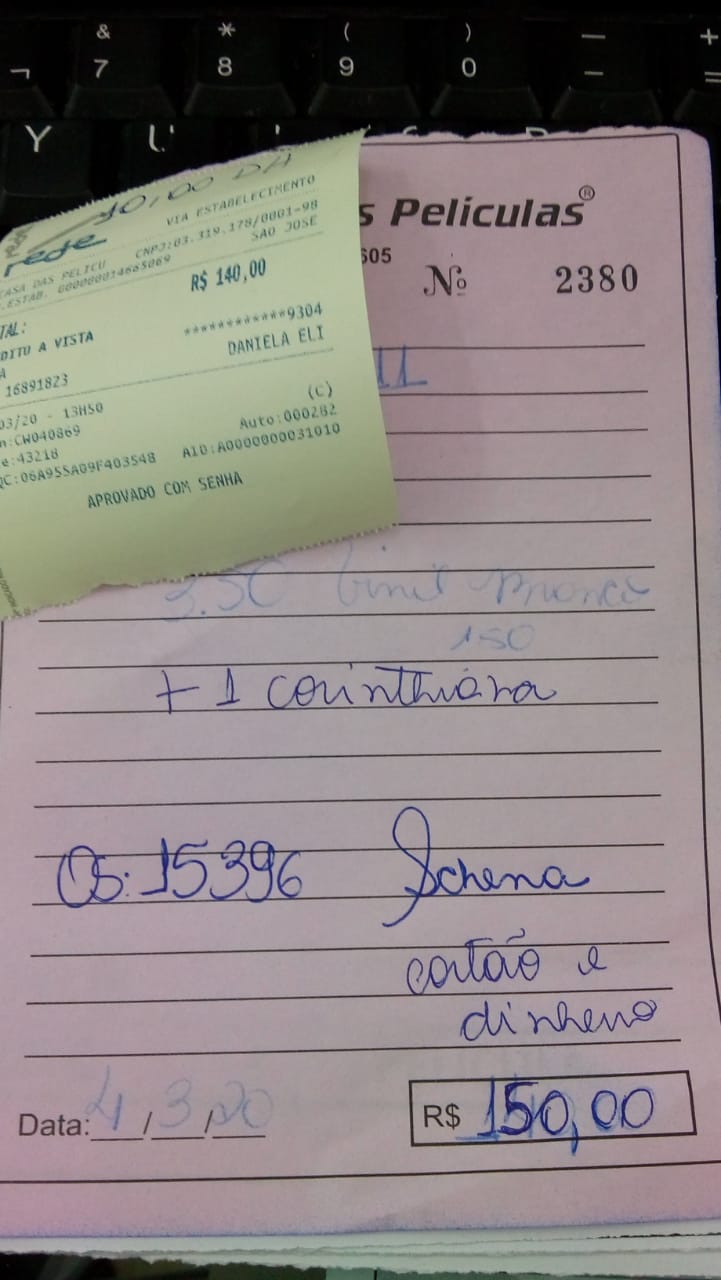 & * ( ) — +
¬ 7 8 9 0 – =
Y U
10,00 DH
rede
VIA ESTABELECIMENTO
CASA DAS PELICU CNPJ:03.319.178/0001-98
ESTAB. 000000014665069 SAO JOSE
R$ 140,00
TAL:
DITO A VISTA ************9304
A DANIELA ELI
16891823
03/20 - 13H50 (C)
n:CW040869 Auto:000282
e:43218
QC:06A955A09F403548 AID:A0000000031010
APROVADO COM SENHA
s Películas®
605
Nº 2380
11
3.50
150
+ 1 corinthiana
OS: 15396 Schena
cartão e
dinheiro
Data: 4/3/20 R$ 150,00